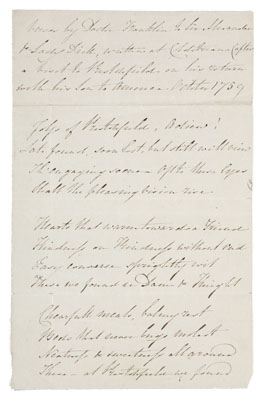 Verses by Doctor Franklin to Sir Alexander
& Lady Dick, written at Coldstream (after
a visit to Prestonfield, on his return
with his Son to America October 1759
Joys of Prestonfield, Adieu!
Late found, soon lost, but still we'll view
Th' engaging scene - Oft to these Eyes
Shall the pleasing vision rise.
Hearts that warm towards a Friend
Kindness on Kindness without end
Easy converse sprightly wit
These we found in Dame & Knight
Chearfull meals, balmy rest
Beds that never bugs molest
Neatness & sweetness all around
These - at Prestonfield we found